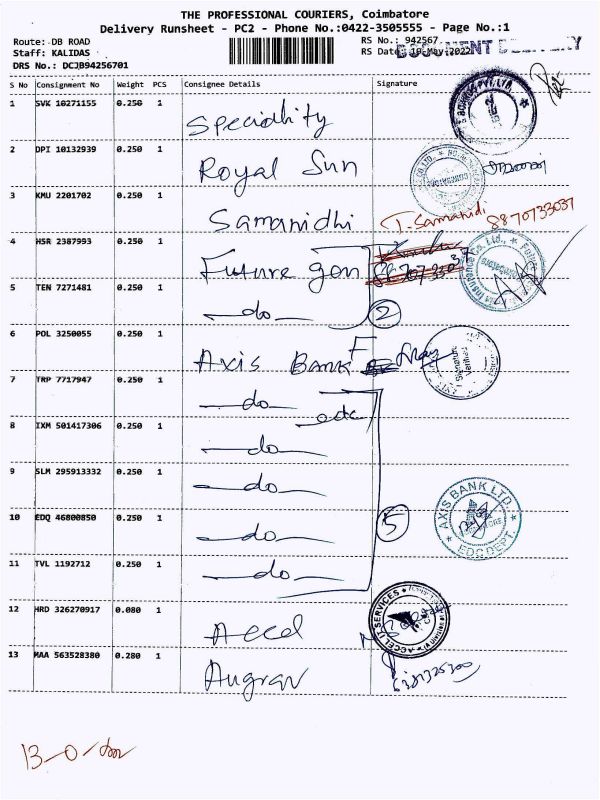 THE PROFESSIONAL COURIERS, Coimbatore
Delivery Runsheet - PC2 - Phone No.:0422-3505555 - Page No.:1
Route: DB ROAD
RS No.: 942567
Staff: KALIDAS
RS Date: 10-May-2022
DOCUMENT DELIVERY
DRS No.: DCJB94256701
S No Consignment No Weight PCS Consignee Details Signature
1 SVK 10271155 0.250 1 Speciality
2 DPI 10132939 0.250 1 Royal Sun
3 KMU 2201702 0.250 1 Samanidhi T. Samanidi
8870733037
4 HSR 2387993 0.250 1 Future gen
5 TEN 7271481 0.250 1 —do— 2
6 POL 3250055 0.250 1 Axis Bank
Signature Verified
7 TRP 7717947 0.250 1 —do— edc
8 IXM 501417306 0.250 1 —do—
9 SLM 295913332 0.250 1 —do—
10 EDQ 46800850 0.250 1 —do— 5
AXIS BANK LTD. EDC DEPT.
11 TVL 1192712 0.250 1 —do—
12 HRD 326270917 0.080 1 Accel
13 MAA 563528380 0.280 1